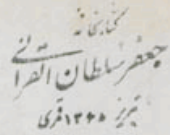 کتابخانهٔ
جعفر سلطان القرائی
تبریز ۱۳۴۰ قمری